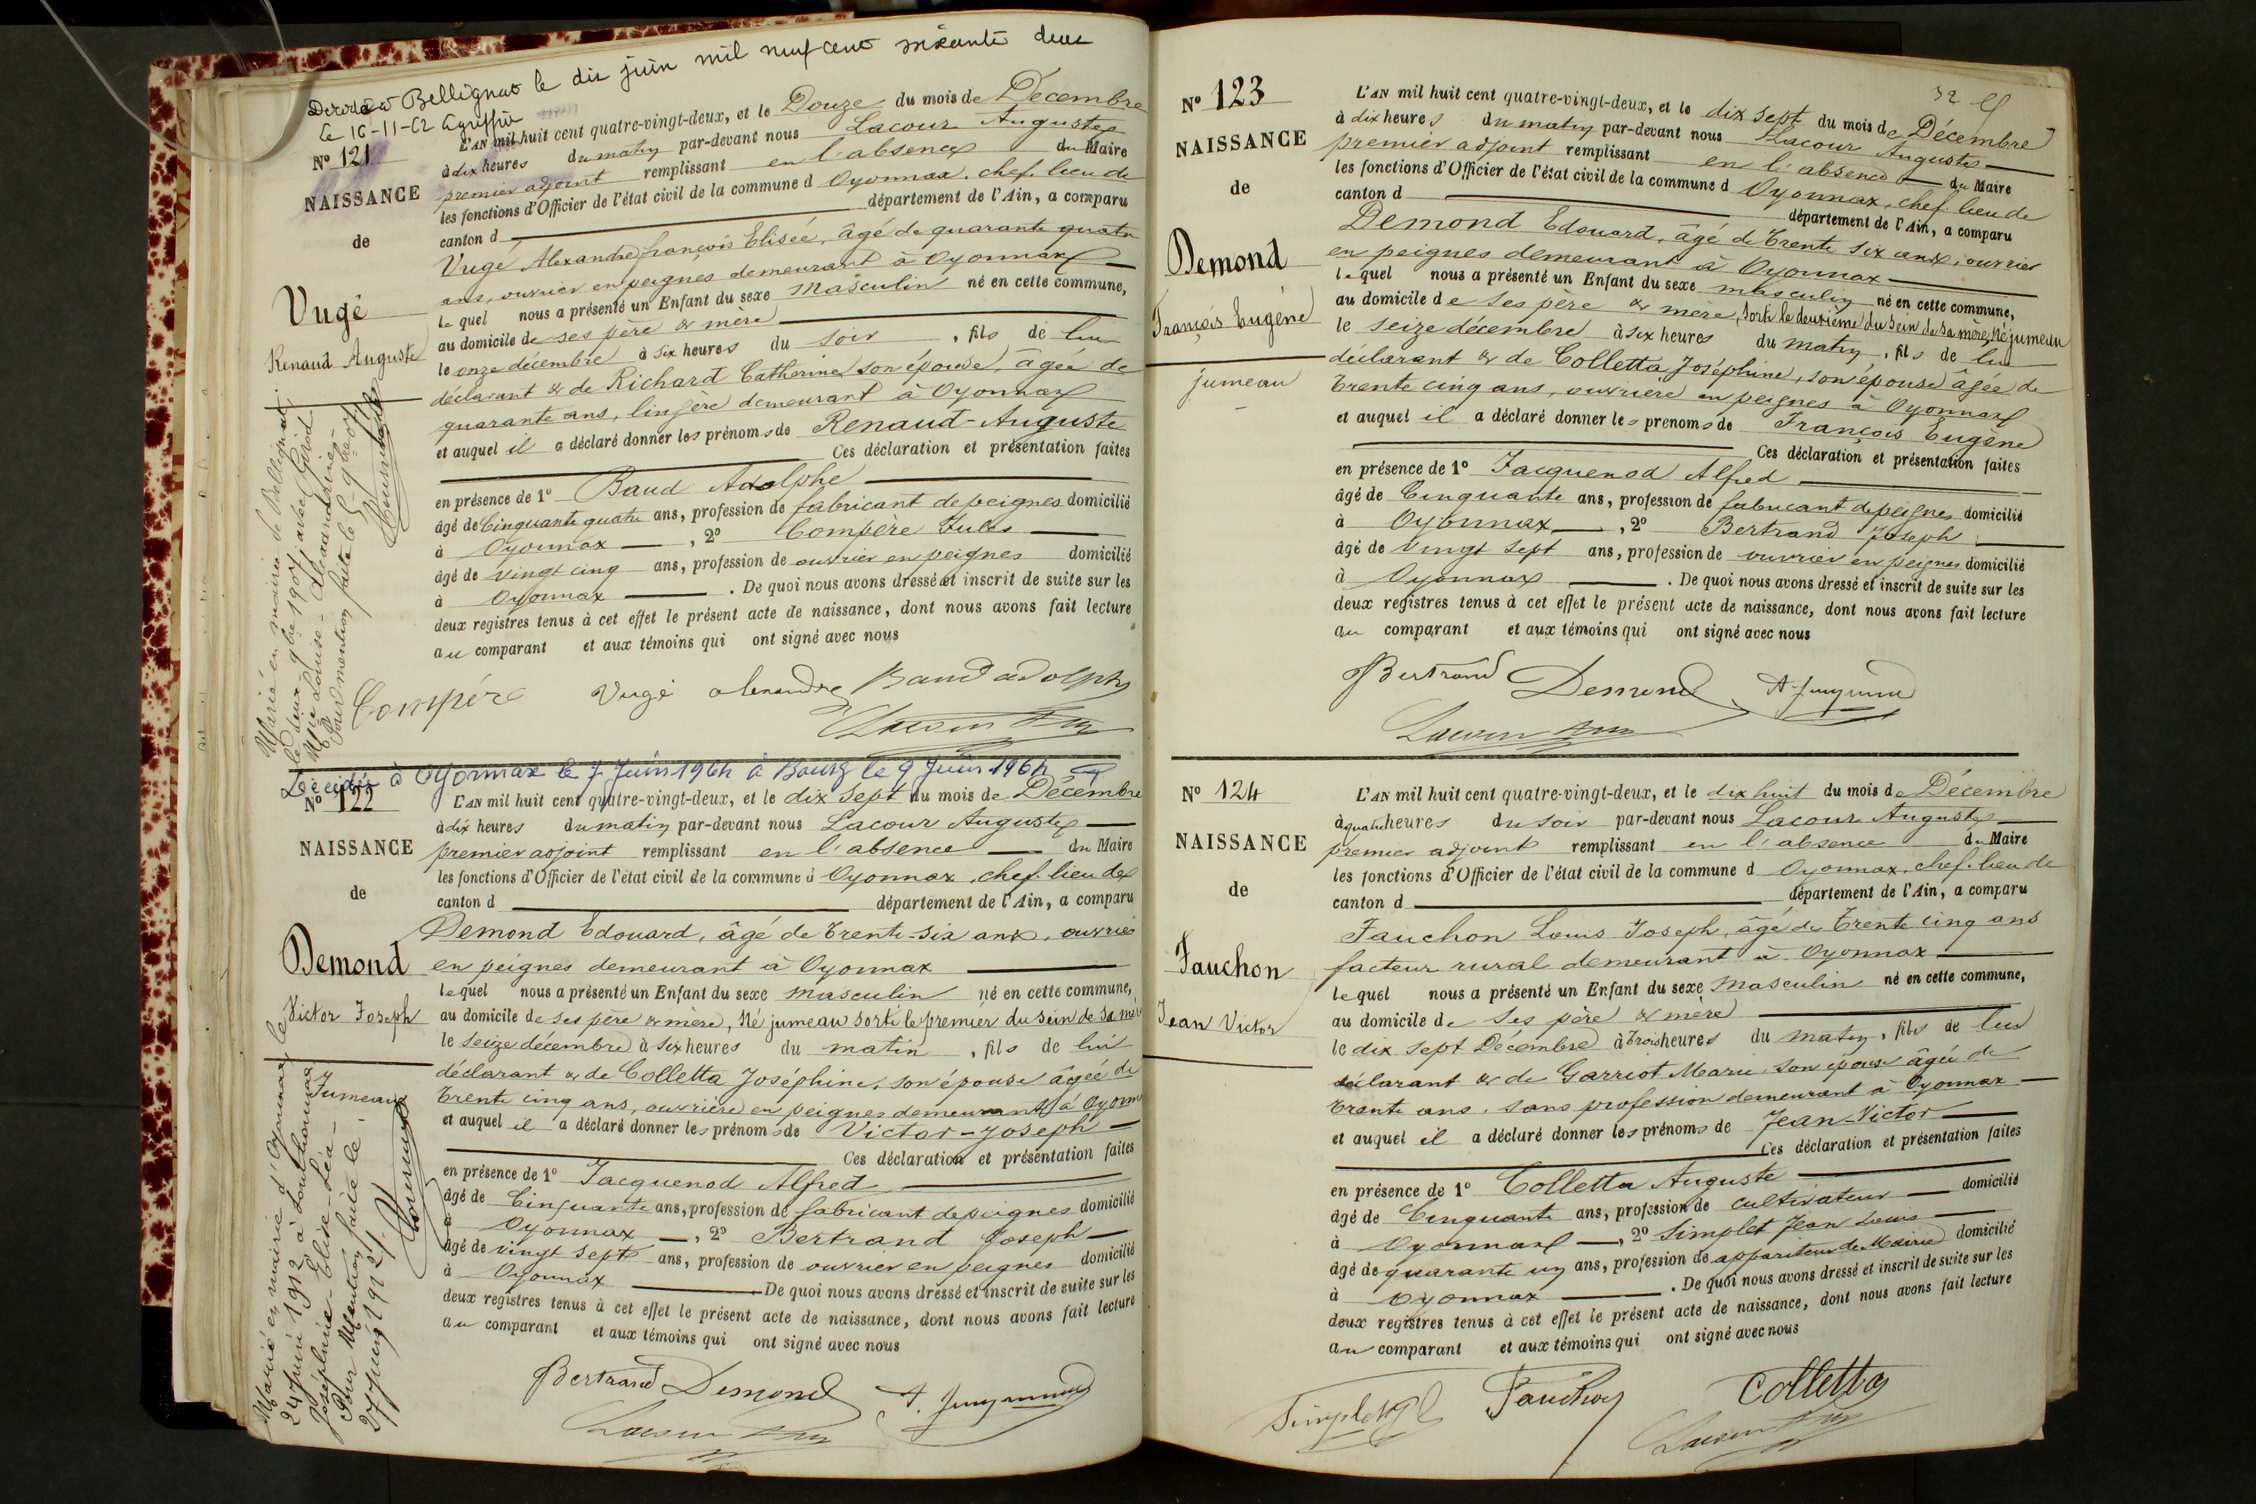 Décédé à Bellignat le dix juin mil neuf cent soixante deux
Le 16-11-62
N° 121
NAISSANCE
de
Vugé
Renaud Auguste
Marié en mairie de Bellignat
le deux 9bre 1907 avec Girod
Marie Louise - Alexandrine -
Pour mention faite le 5 9bre 07
L'AN mil huit cent quatre-vingt-deux, et le Douze du mois de Décembre
à dix heures du matin par-devant nous Lacour Auguste
premier adjoint remplissant en l'absence du Maire
les fonctions d'Officier de l'état civil de la commune d Oyonnax, chef lieu de
canton d département de l'Ain, a comparu
Vugé Alexandre françois Elisée, âgé de quarante quatre
ans, ouvrier en peignes demeurant à Oyonnax
lequel nous a présenté un Enfant du sexe Masculin né en cette commune,
au domicile de ses père & mère
le onze décembre à six heures du soir, fils de lui
déclarant & de Richard Catherine son épouse, âgée de
quarante ans, lingère demeurant à Oyonnax
et auquel il a déclaré donner les prénoms de Renaud-Auguste
Ces déclaration et présentation faites
en présence de 1° Baud Adolphe
âgé de Cinquante quatre ans, profession de fabricant de peignes domicilié
à Oyonnax, 2° Compère Jules
âgé de vingt cinq ans, profession de ouvrier en peignes domicilié
à Oyonnax. De quoi nous avons dressé et inscrit de suite sur les
deux registres tenus à cet effet le présent acte de naissance, dont nous avons fait lecture
au comparant et aux témoins qui ont signé avec nous
Compère Vugé alexandre Baud adolphe
Décédé à Oyonnax le 7 Juin 1964 à Bourg le 9 Juin 1964
N° 122
NAISSANCE
de
Demond
Victor Joseph
Jumeau
Marié en mairie d'Oyonnax le
Joséphine - Elise - Léa -
Pour Mention faite le
L'AN mil huit cent quatre-vingt-deux, et le dix sept du mois de Décembre
à dix heures du matin par-devant nous Lacour Auguste
premier adjoint remplissant en l'absence du Maire
les fonctions d'Officier de l'état civil de la commune d Oyonnax, chef lieu de
canton d département de l'Ain, a comparu
Demond Edouard, âgé de trente-six ans, ouvrier
en peignes demeurant à Oyonnax
lequel nous a présenté un Enfant du sexe masculin né en cette commune,
au domicile de ses père & mère, Né jumeau sorti le premier du sein de sa mère
le seize décembre à six heures du matin, fils de lui
déclarant & de Colletta Joséphine, son épouse âgée de
trente cinq ans, ouvrière en peignes demeurant à Oyonnax
et auquel il a déclaré donner les prénoms de Victor-Joseph
Ces déclaration et présentation faites
en présence de 1° Jacquenod Alfred
âgé de Cinquante ans, profession de fabricant de peignes domicilié
à Oyonnax, 2° Bertrand Joseph
âgé de vingt sept ans, profession de ouvrier en peignes domicilié
à Oyonnax De quoi nous avons dressé et inscrit de suite sur les
deux registres tenus à cet effet le présent acte de naissance, dont nous avons fait lecture
au comparant et aux témoins qui ont signé avec nous
Bertrand Demond
32
N° 123
NAISSANCE
de
Demond
François Eugène
jumeau
L'AN mil huit cent quatre-vingt-deux, et le dix sept du mois de Décembre
à dix heures du matin par-devant nous Lacour Auguste
premier adjoint remplissant en l'absence du Maire
les fonctions d'Officier de l'état civil de la commune d Oyonnax, chef lieu de
canton d département de l'Ain, a comparu
Demond Edouard, âgé de trente six ans, ouvrier
en peignes demeurant à Oyonnax
lequel nous a présenté un Enfant du sexe masculin né en cette commune,
au domicile de ses père & mère, sorti le deuxième du sein de sa mère, Né jumeau
le seize décembre à six heures du matin, fils de lui
déclarant & de Colletta Joséphine, son épouse âgée de
trente cinq ans, ouvrière en peignes à Oyonnax
et auquel il a déclaré donner les prenoms de François Eugène
Ces déclaration et présentation faites
en présence de 1° Jacquenod Alfred
âgé de Cinquante ans, profession de fabricant de peignes domicilié
à Oyonnax, 2° Bertrand Joseph
âgé de vingt sept ans, profession de ouvrier en peignes domicilié
à Oyonnax. De quoi nous avons dressé et inscrit de suite sur les
deux registres tenus à cet effet le présent acte de naissance, dont nous avons fait lecture
au comparant et aux témoins qui ont signé avec nous
Bertrand Demond
N° 124
NAISSANCE
de
Fauchon
Jean Victor
L'AN mil huit cent quatre-vingt-deux, et le dix huit du mois de Décembre
à quatre heures du soir par-devant nous Lacour Auguste
premier adjoint remplissant en l'absence du Maire
les fonctions d'Officier de l'état civil de la commune d Oyonnax, chef lieu de
canton d département de l'Ain, a comparu
Fauchon Louis Joseph, âgé de trente cinq ans
facteur rural demeurant à Oyonnax
lequel nous a présenté un Enfant du sexe Masculin né en cette commune,
au domicile de ses père & mère
le dix sept Décembre à trois heures du matin, fils de lui
déclarant & de Garriot Marie son épouse âgée de
trente ans, sans profession demeurant à Oyonnax
et auquel il a déclaré donner les prénoms de Jean-Victor
Ces déclaration et présentation faites
en présence de 1° Colletta Auguste
âgé de Cinquante ans, profession de cultivateur domicilié
à Oyonnax, 2° Simplet Jean Louis
âgé de quarante un ans, profession de appariteur de Mairie domicilié
à Oyonnax. De quoi nous avons dressé et inscrit de suite sur les
deux registres tenus à cet effet le présent acte de naissance, dont nous avons fait lecture
au comparant et aux témoins qui ont signé avec nous
Simplet Fauchon Colletta